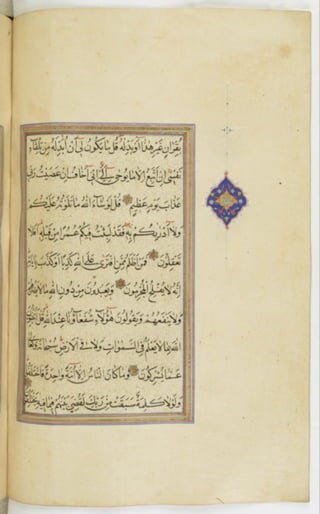 بِقُرْآنٍ غَيْرِ هٰذَا أَوْ بَدِّلْهُ قُلْ مَا يَكُونُ لِي أَنْ أُبَدِّلَهُ مِنْ تِلْقَاءِ
نَفْسِي إِنْ أَتَّبِعُ إِلَّا مَا يُوحَى إِلَيَّ إِنِّي أَخَافُ إِنْ عَصَيْتُ رَبِّي
عَذَابَ يَوْمٍ عَظِيمٍ قُلْ لَوْ شَاءَ اللهُ مَا تَلَوْتُهُ عَلَيْكُمْ
وَلَا أَدْرَيكُمْ بِهِ فَقَدْ لَبِثْتُ فِيكُمْ عُمُرًا مِنْ قَبْلِهِ أَفَلَا
تَعْقِلُونَ فَمَنْ أَظْلَمُ مِمَّنِ افْتَرَى عَلَى اللهِ كَذِبًا أَوْ كَذَّبَ بِآيَاتِهِ
إِنَّهُ لَا يُفْلِحُ الْمُجْرِمُونَ وَيَعْبُدُونَ مِنْ دُونِ اللهِ مَا لَا يَضُرُّهُمْ
وَلَا يَنْفَعُهُمْ وَيَقُولُونَ هٰؤُلَاءِ شُفَعَاؤُنَا عِنْدَ اللهِ قُلْ أَتُنَبِّئُونَ
اللهَ بِمَا لَا يَعْلَمُ فِي السَّمٰوَاتِ وَلَا فِي الْأَرْضِ سُبْحَانَهُ وَتَعَالَى
عَمَّا يُشْرِكُونَ وَمَا كَانَ النَّاسُ إِلَّا أُمَّةً وَاحِدَةً فَاخْتَلَفُوا
وَلَوْلَا كَلِمَةٌ سَبَقَتْ مِنْ رَبِّكَ لَقُضِيَ بَيْنَهُمْ فِيمَا فِيهِ يَخْتَلِفُونَ